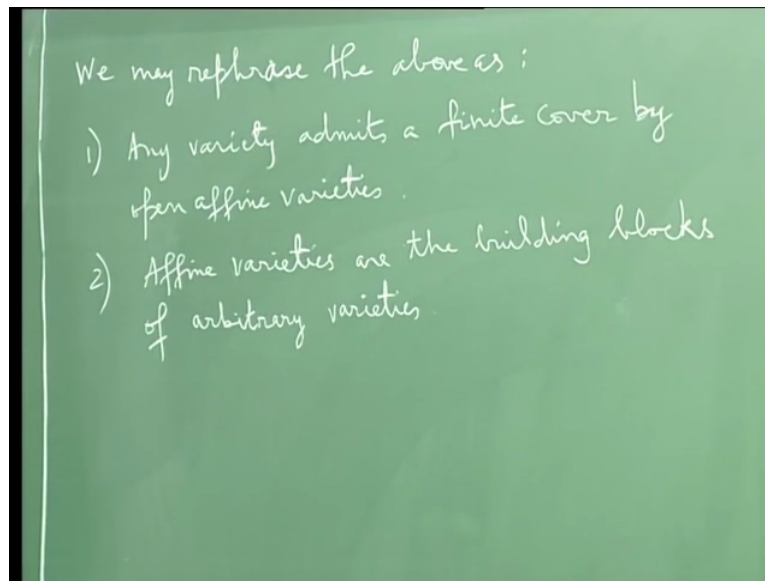 We may rephrase the above as :
1) Any variety admits a finite cover by
open affine varieties .
2) Affine varieties are the building blocks
of arbitrary varieties.